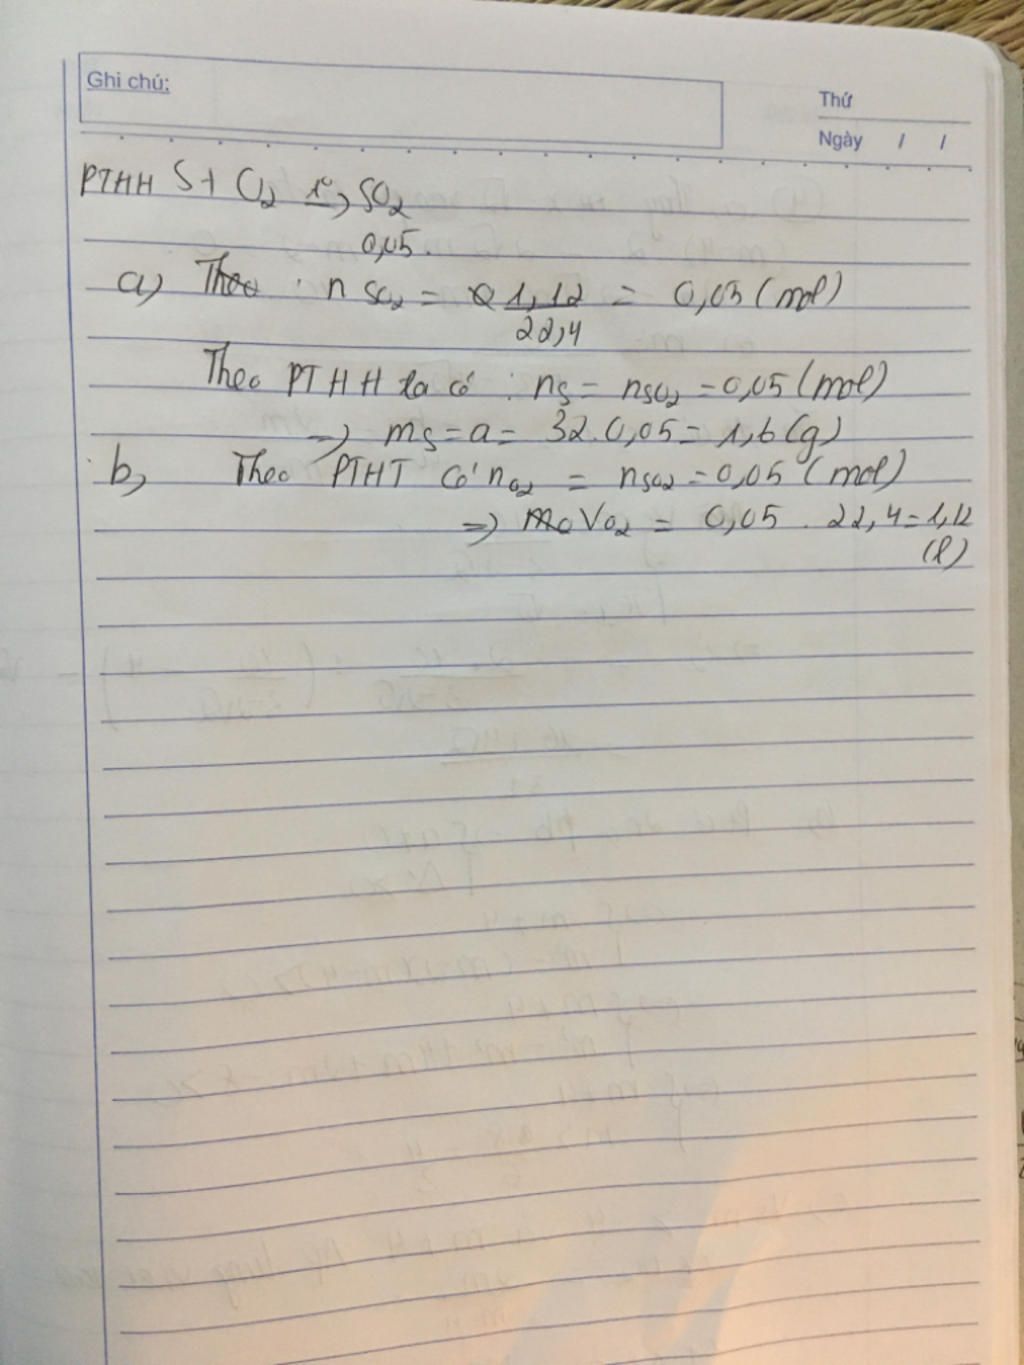 Ghi chú:
Thứ
Ngày / /
PTHH S + O₂ t°→ SO₂
0,05.
a) Theo : n SO₂ = 1,12 / 22,4 = 0,05 (mol)
Theo PTHH ta có : nS = nSO₂ = 0,05 (mol)
=> mS = a = 32.0,05 = 1,6 (g)
b, Theo PTHT Có nO₂ = nSO₂ = 0,05 (mol)
=> VO₂ = 0,05 . 22,4 = 1,12
(l)